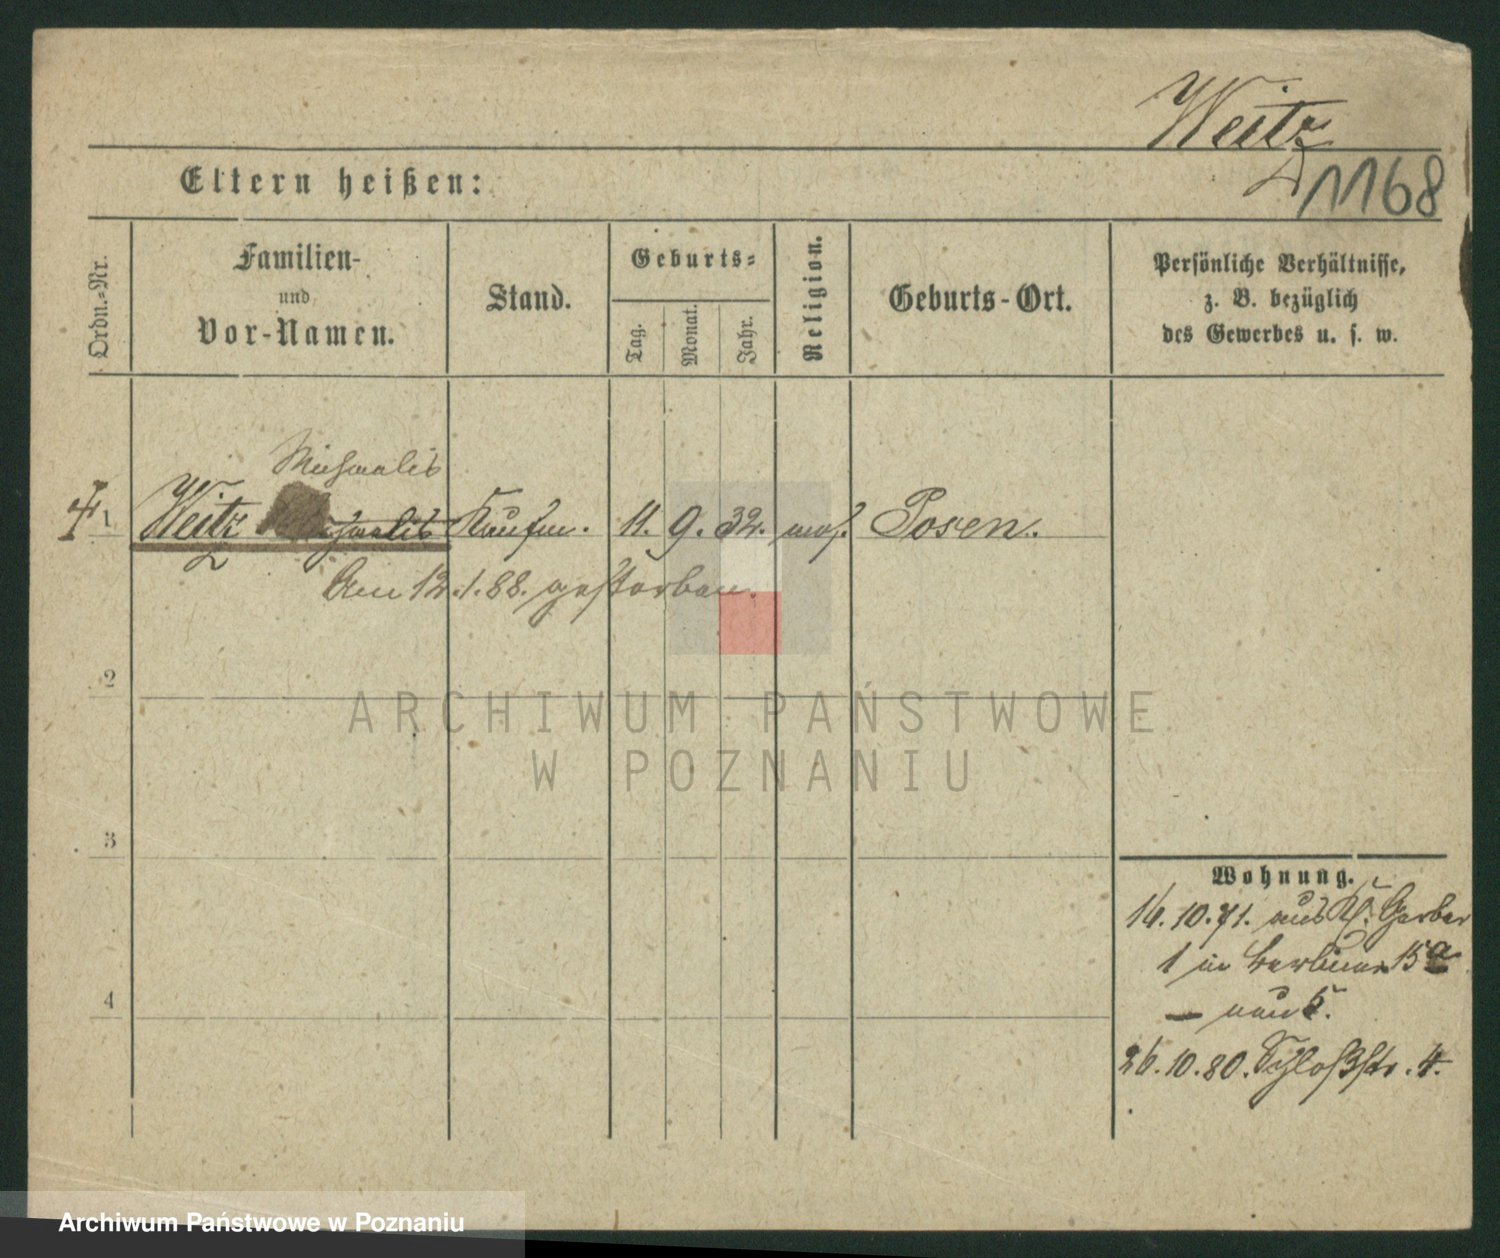 Weitz
1168
Eltern heißen:
Ordn.-Nr.
Familien-
und
Vor-Namen.
Stand.
Geburts-
Tag.
Monat.
Jahr.
Religion.
Geburts-Ort.
Persönliche Verhältnisse,
z. B. bezüglich
des Gewerbes u. s. w.
Michaelis
1 Weitz Kaufm. 11. 9. 32. mos. Posen.
Am 12.1.88. gestorben.
2
ARCHIWUM PAŃSTWOWE
W POZNANIU
3
Wohnung.
16.10.71. aus Kl. Gerber
1 in Berliner 15a
4
26.10.80. Schloßstr. 4.
Archiwum Państwowe w Poznaniu